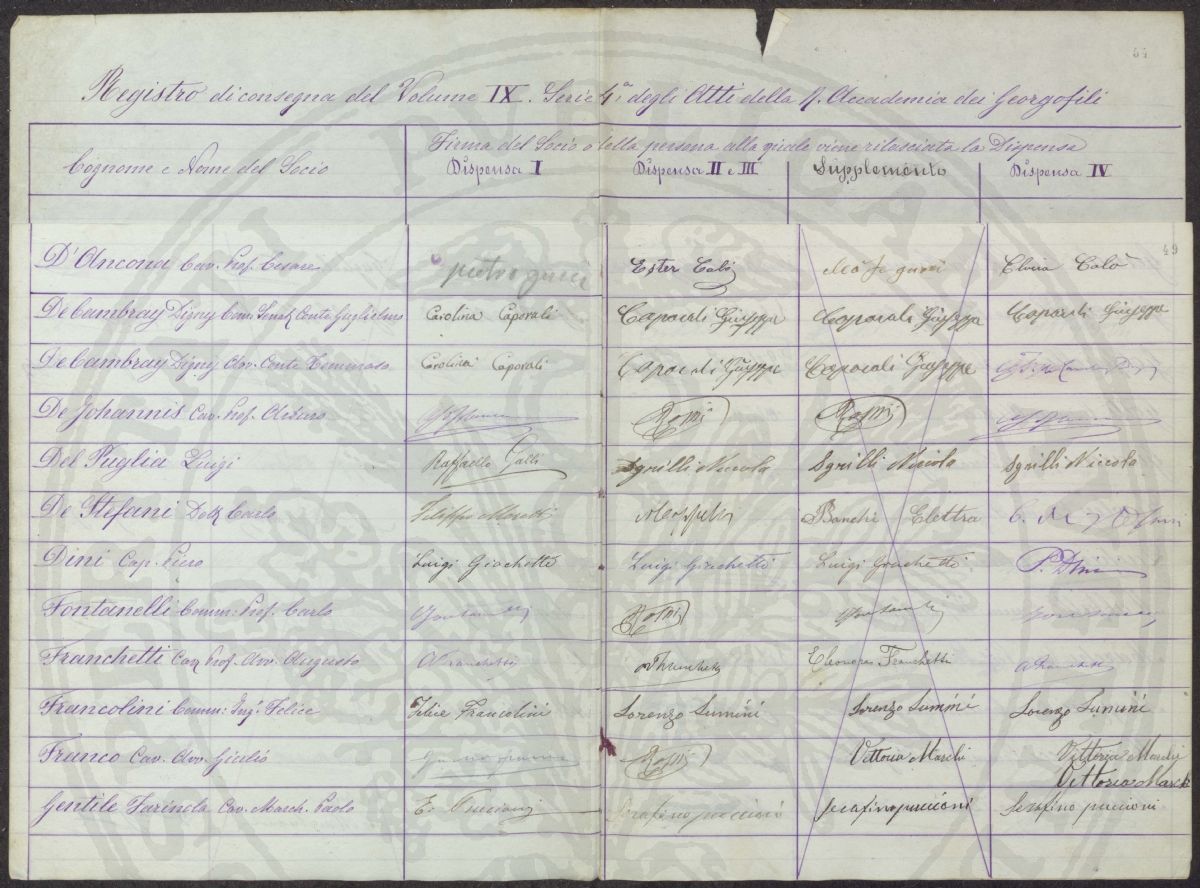 54
Registro di consegna del Volume IX. Serie 4ª degli Atti della R. Accademia dei Georgofili
Cognome e Nome del Socio
Firma del Socio o della persona alla quale viene rilasciata la Dispensa
Dispensa I Dispensa II e III Supplemento Dispensa IV
49
D'Ancona Cav. Prof. Cesare Ester Calò Elvira Calò
De Cambray Digny Conte Guglielmo Carolina Caporali Caporali Giuseppe Caporali Giuseppe Caporali Giuseppe
De Cambray Digny Avv. Conte Tommaso Carolina Caporali Caporali Giuseppe Caporali Giuseppe
De Johannis Cav. Prof. Arturo
Del Puglia Luigi Raffaello Galli Sgrilli Niccola Sgrilli Nicola Sgrilli Niccola
De Stefani Dott. Carlo Filippo Moretti Banchi Elettra
Dini Cap. Piero Luigi Giachetti Luigi Giachetti Luigi Giachetti P. Dini
Fontanelli Comm. Prof. Carlo
Franchetti Cav. Prof. Avv. Augusto A Franchetti A Franchetti Eleonora Franchetti
Francolini Comm. Ing. Felice Felice Francolini Lorenzo Sumini Lorenzo Sumini Lorenzo Sumini
Franco Cav. Avv. Giulio Vittoria Marchi Vittoria Marchi
Vittoria Marchi
Gentile Farinola Cav. March. Paolo Serafino puccioni serafino puccioni Serafino puccioni